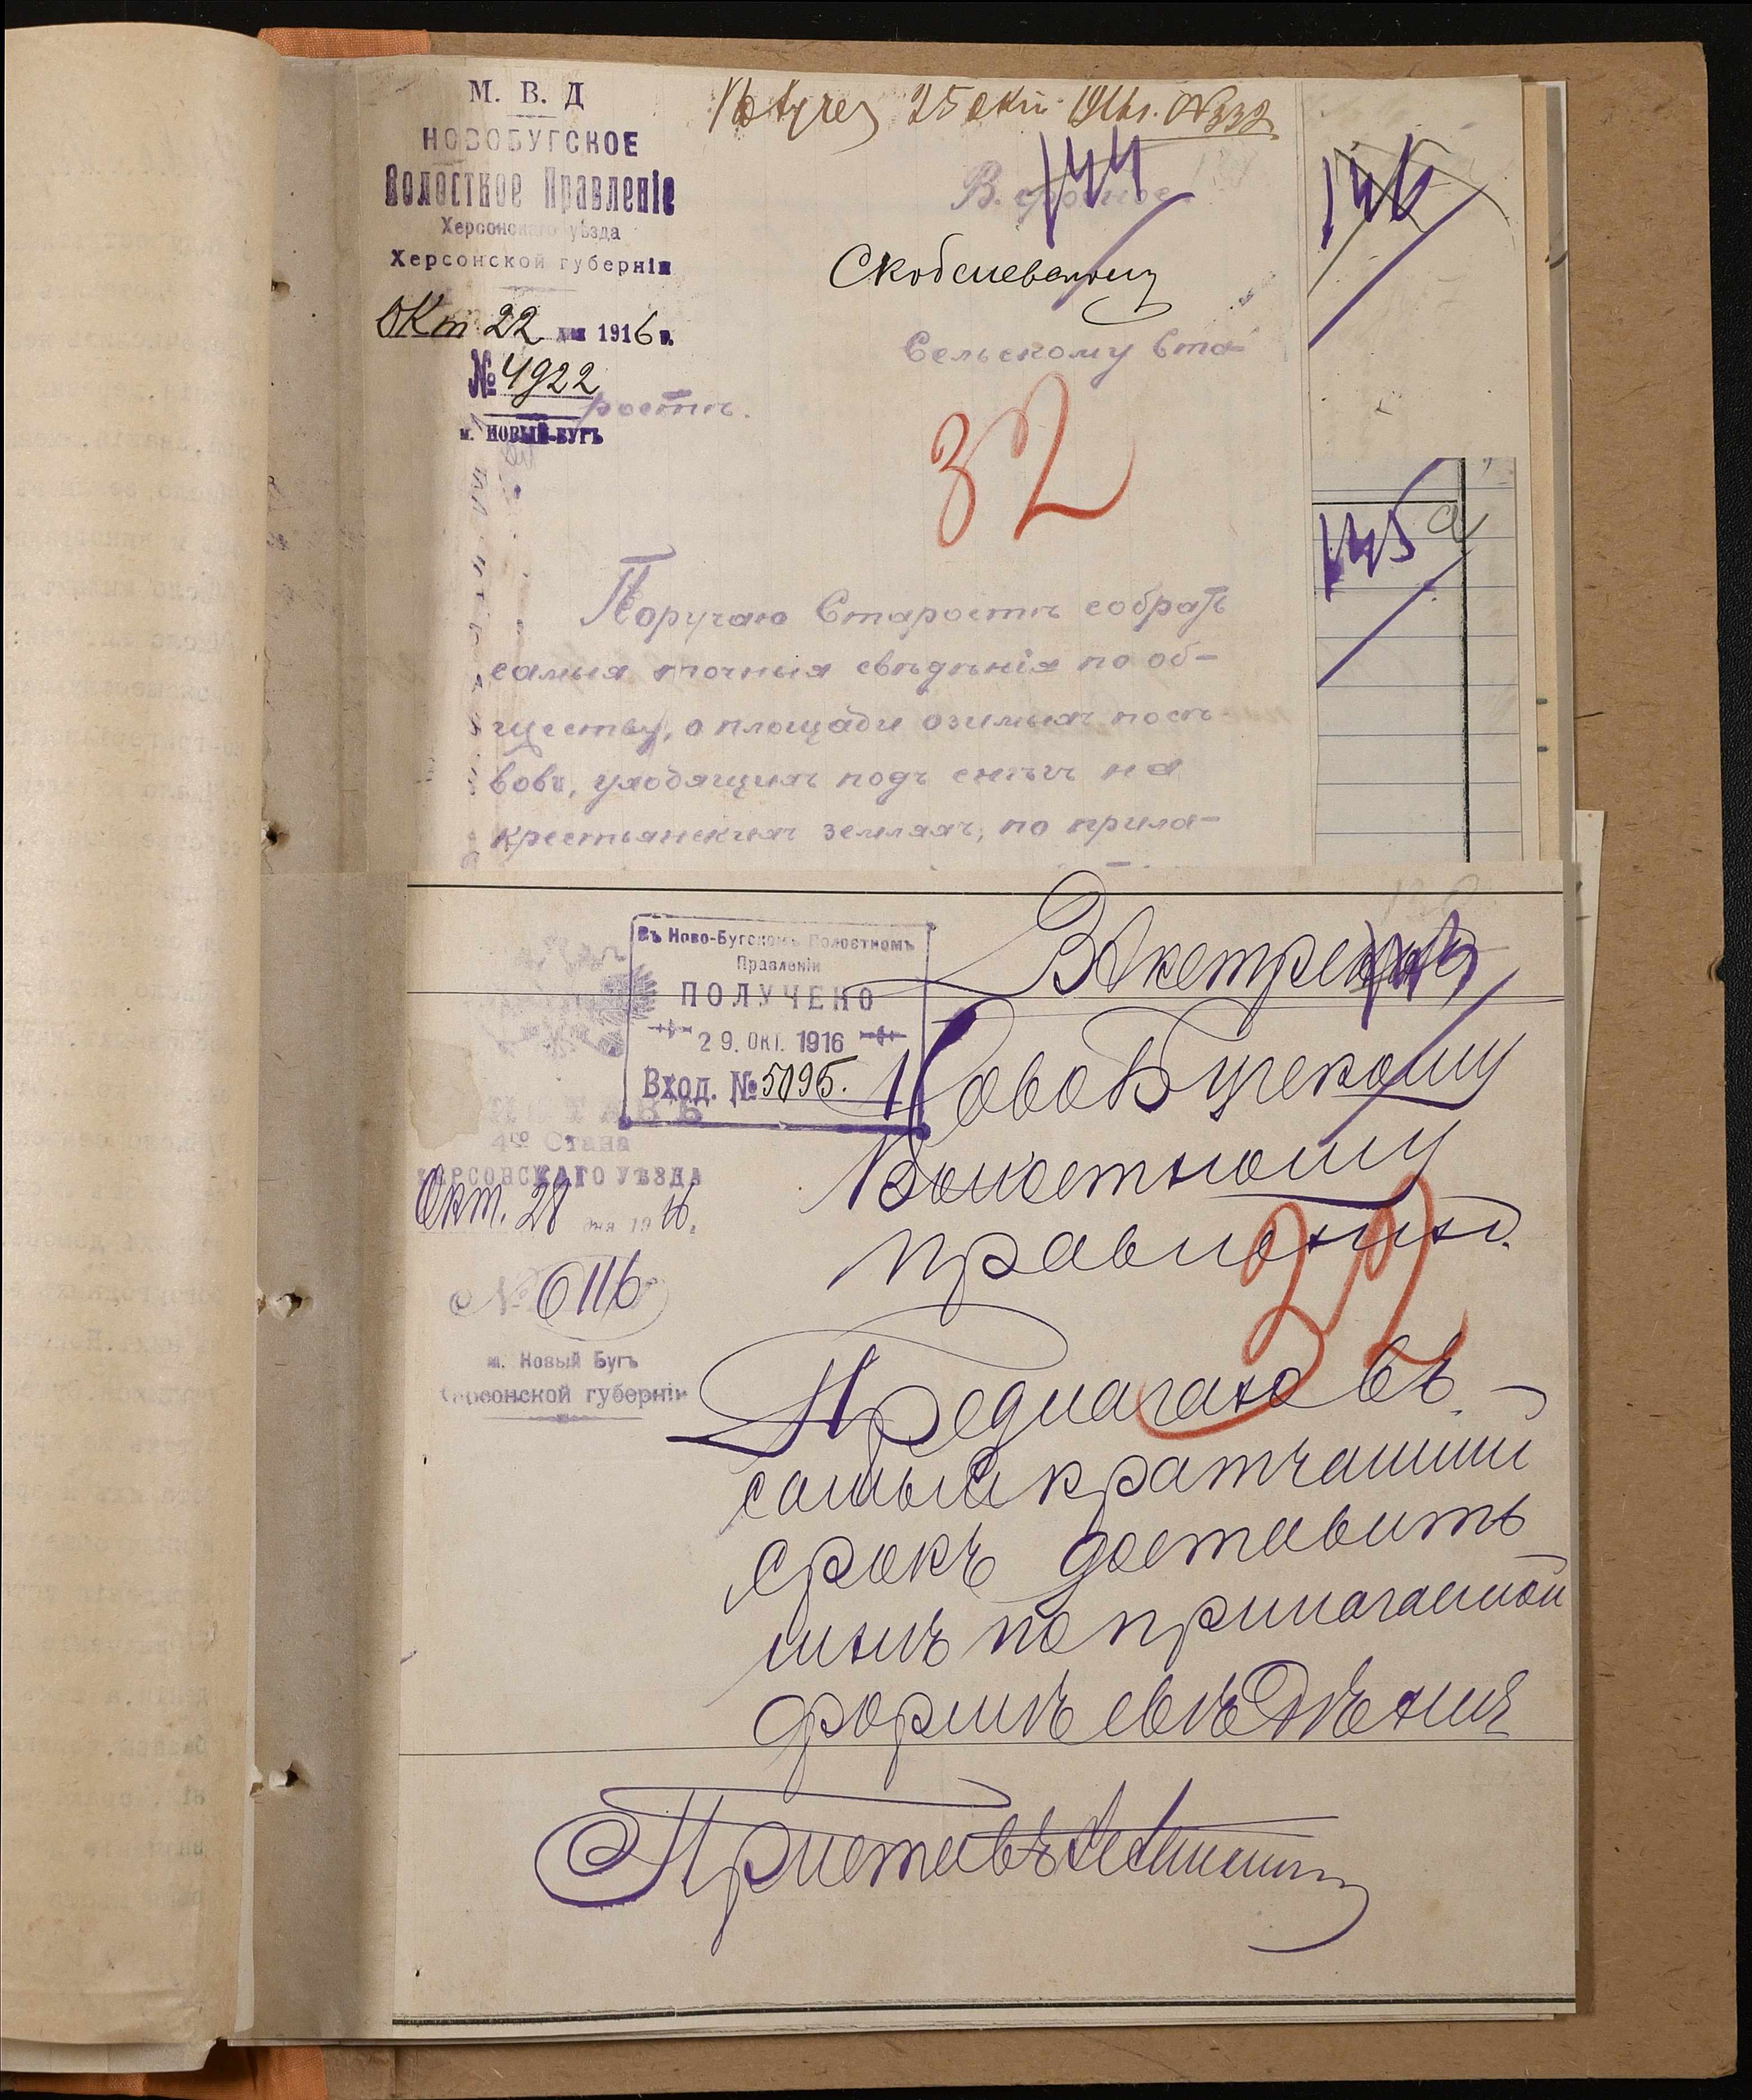 М. В. Д
НОВОБУГСКОЕ
Волостное Правленіе
Херсонскаго уѣзда
Херсонской губерніи
Окт 22 дня 1916 г.
№ 4922
м. НОВЫЙ-БУГЪ
25 окт 1916 г. № 332
144
В. срочное
Скобелевскому
Сельскому Ста-
ростѣ.
32
146
145
Поручаю Старостѣ собрать
самыя точныя свѣдѣнія по об-
ществу, о площади озимыхъ посѣ-
вовъ, уходящихъ подъ снѣгъ на
крестьянскихъ земляхъ, по прила-
Въ Ново-Бугскомъ Волостномъ
Правленіи
ПОЛУЧЕНО
29. ОКТ. 1916
Вход. № 5095.
ПРИСТАВЪ
4го Стана
ХЕРСОНСКАГО УѢЗДА
Окт. 28 дня 1916 г.
№ 6116
м. Новый Бугъ
Херсонской губерніи
Экстренно
143
Ново Бугскому
Волостному
правленію.
32
Предлагаю въ
самый кратчайшій
срокъ доставить
мнѣ по прилагаемой
формѣ свѣдѣнія
Приставъ